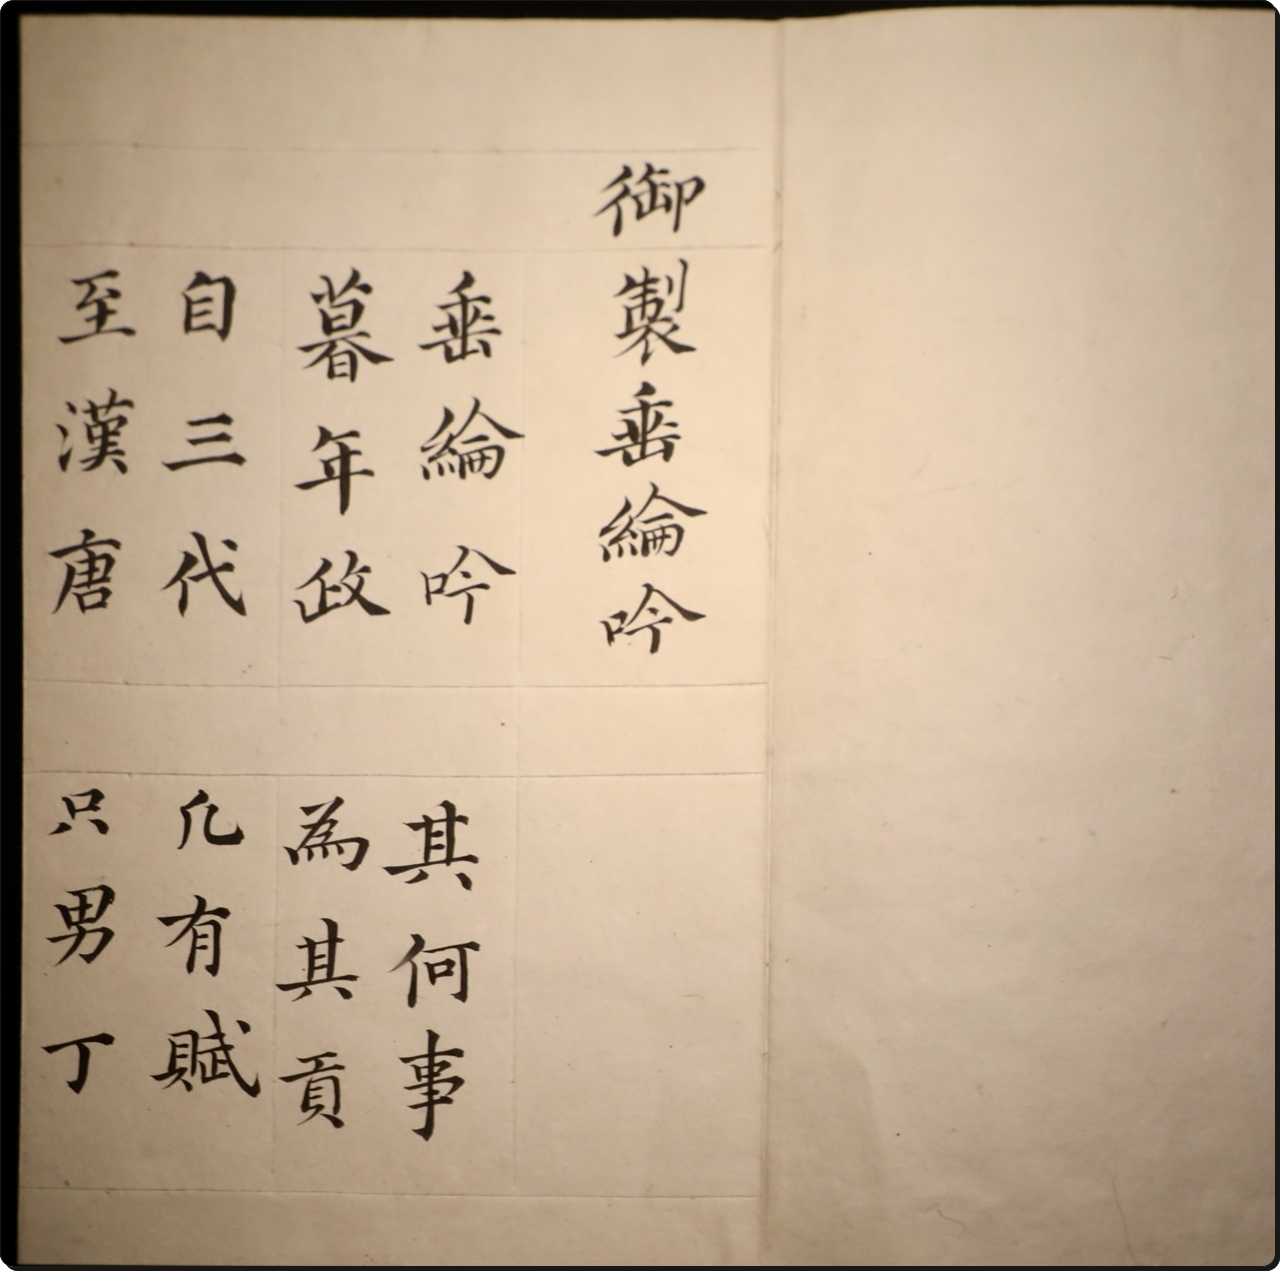 御製垂綸吟
垂綸吟
其何事
暮年政
為其貢
自三代
凡有賦
至漢唐
只男丁